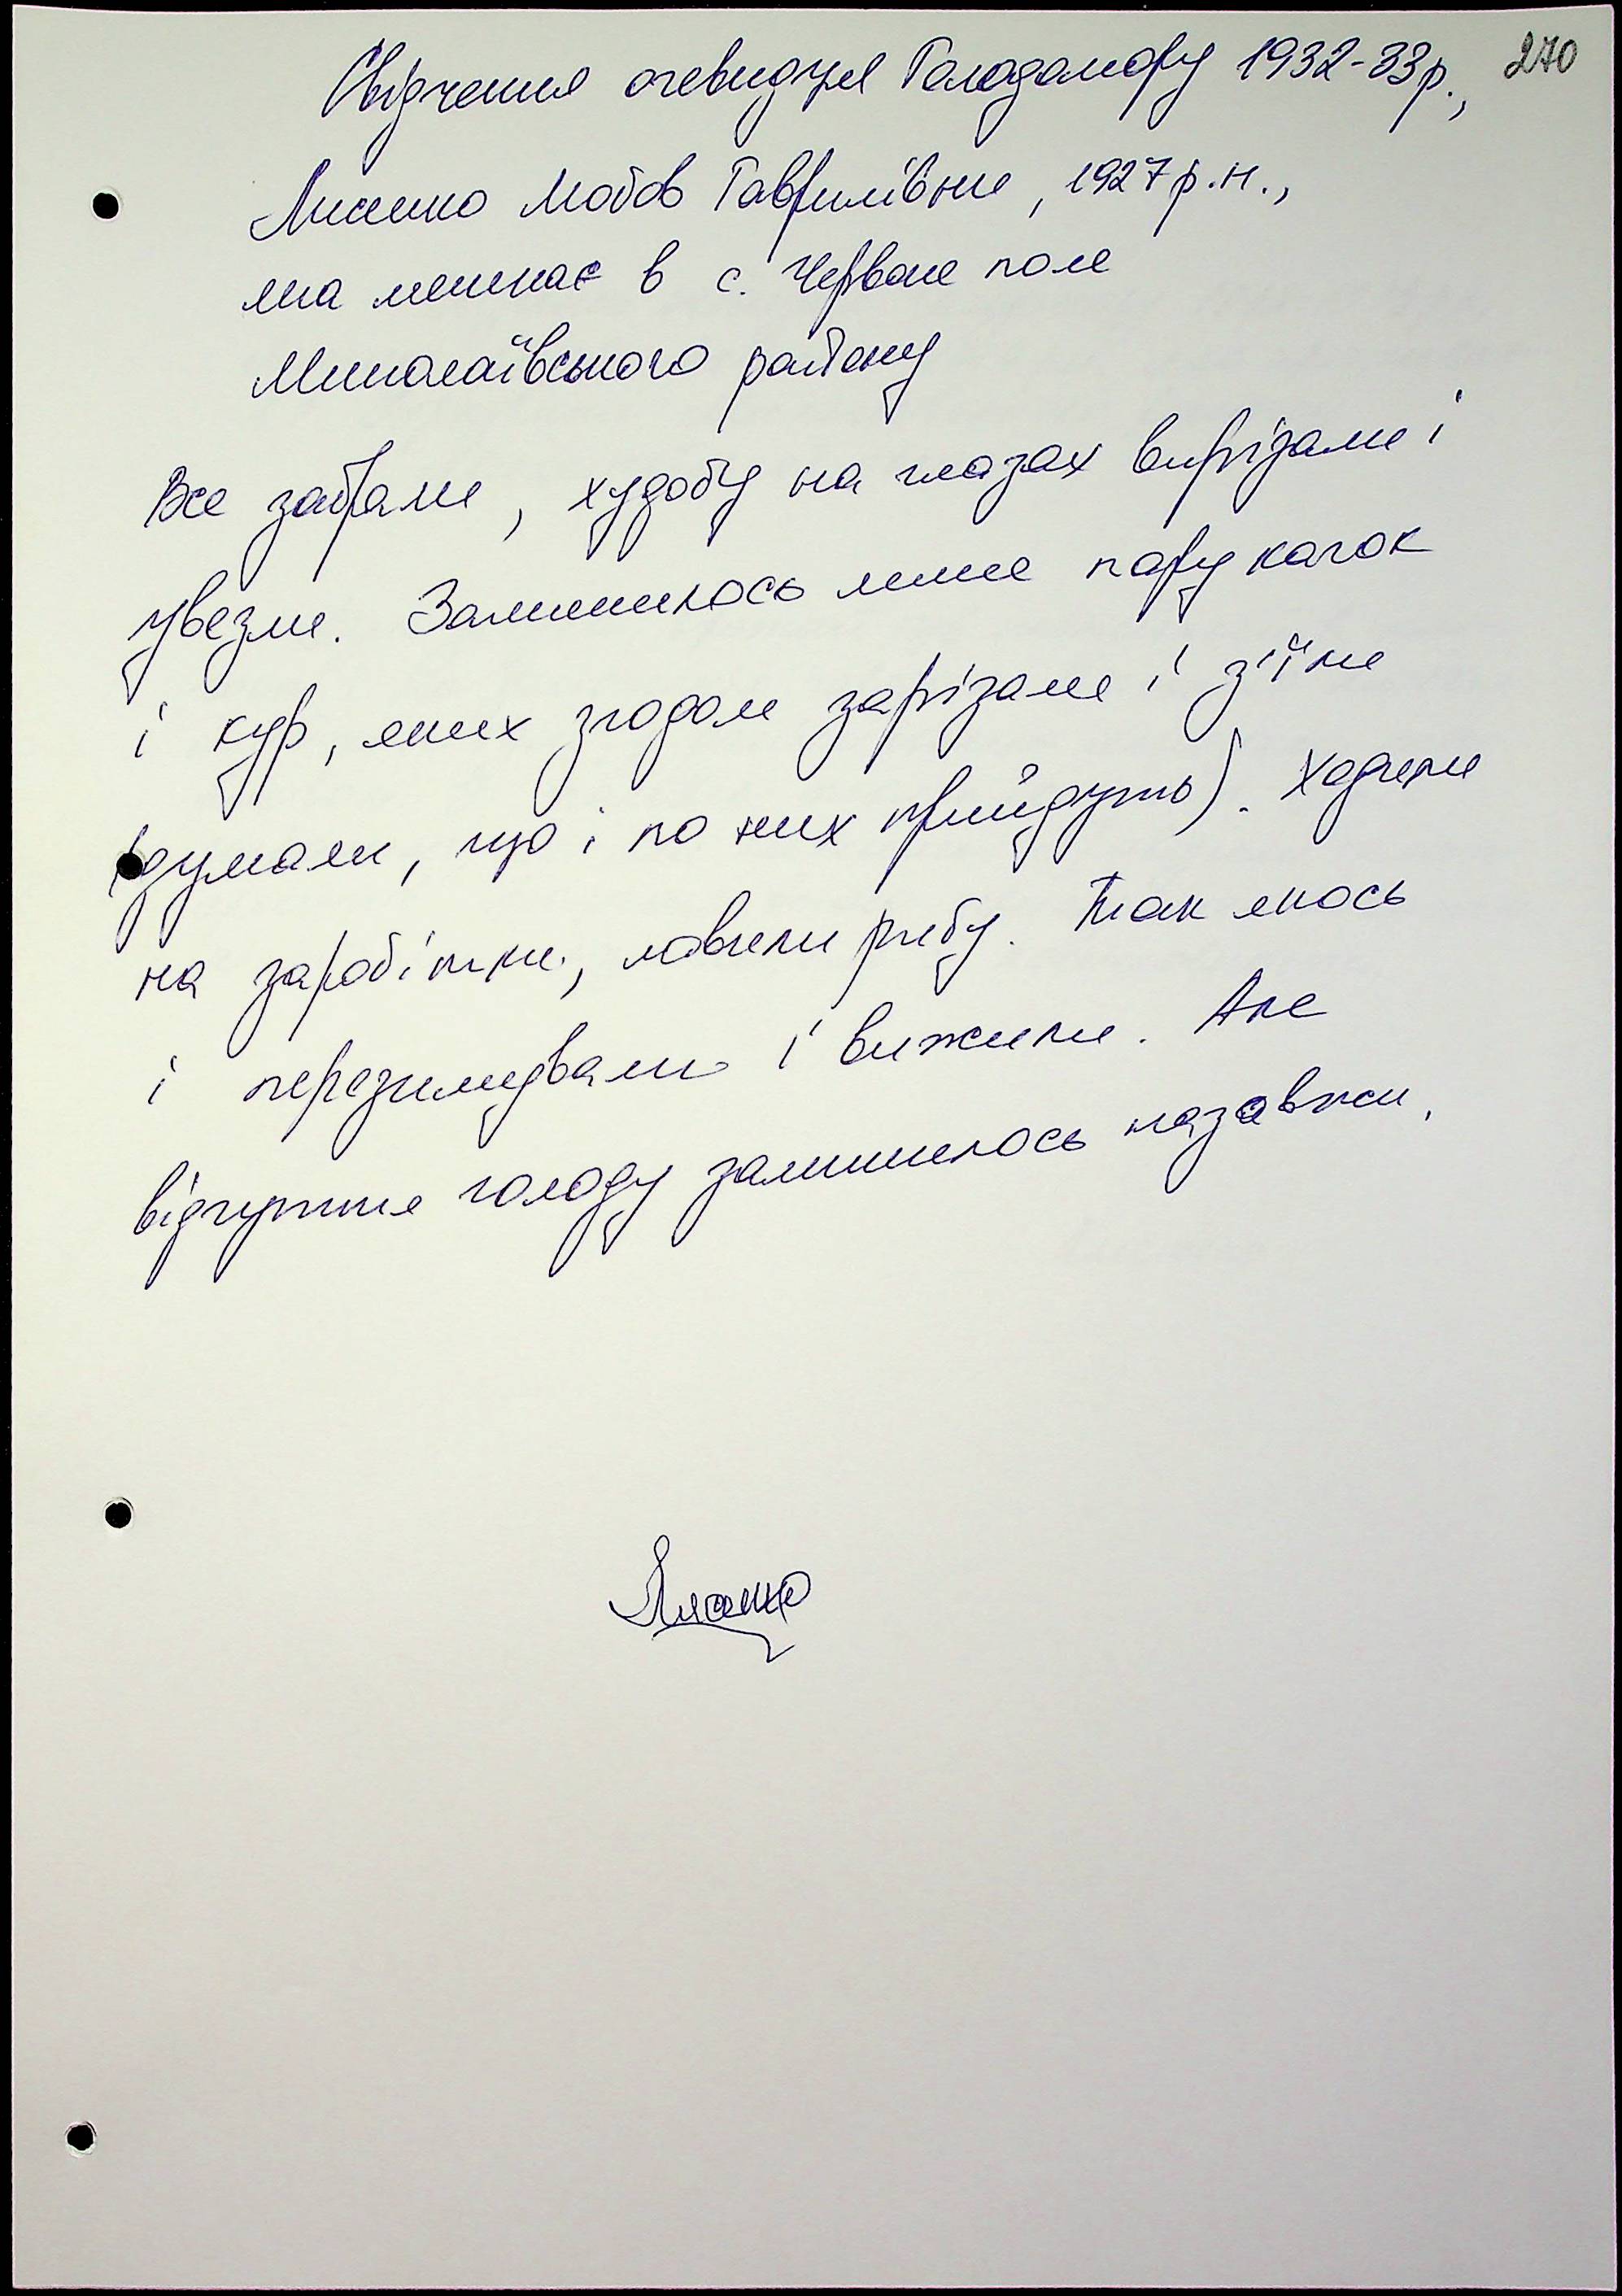 Свідчення очевидця Голодомору 1932-33р., 270
Лисенко Любов Гаврилівни, 1927р.н.,
яка мешкає в с. Червоне поле
Миколаївського району
Все забрали, худобу на глазах вирізали і
увезли. Залишилось лише пару качок
і кур, яких згодом зарізали і з'їли
(думали, що і по них прийдуть). Ходили
на заробітки, ловили рибу. Так якось
і перезимували і вижили. Але
відчуття голоду залишилось назавжди.
Лисенко